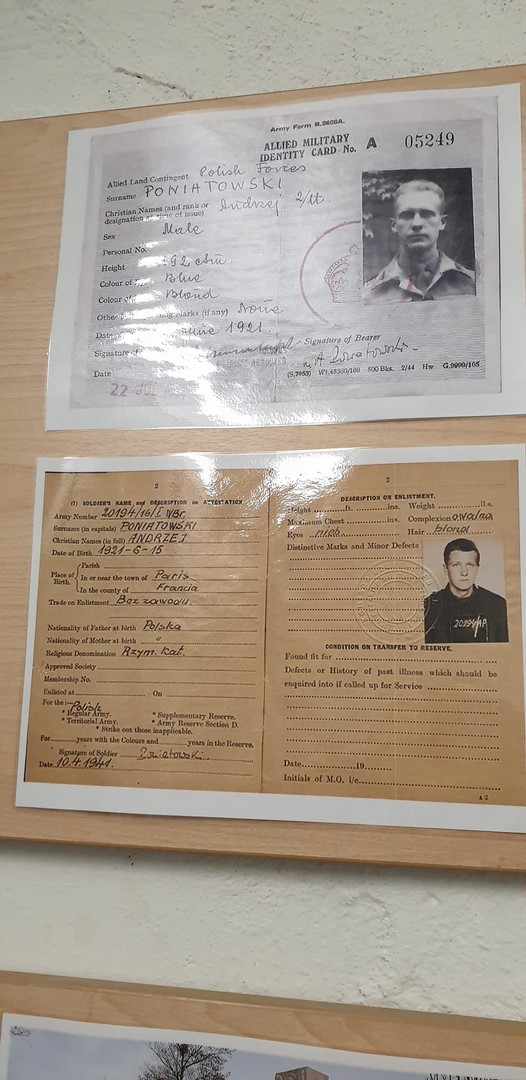 Army Form B.2606A.
ALLIED MILITARY
IDENTITY CARD No. A 05249
Allied Land Contingent Polish Forces
Surname PONIATOWSKI
Christian Names (and rank or Andrzej 2/Lt.
designation at time of issue)
Sex Male
Personal No.
Height 192 ctm.
Colour of Blue
Colour of Blond
Marks (if any) None
June 1921.
Signature of
Signature of Bearer
Date
22 JUL
(S.7953) Wt.45300/169 500 Bks. 2/44 Hw. G.9999/105
2
(1) SOLDIER'S NAME and DESCRIPTION on ATTESTATION.
Army Number 20194/16/I WBr.
Surname (in capitals) PONIATOWSKI
Christian Names (in full) ANDRZEJ
Date of Birth 1921-6-15
Place of Birth.
Parish
In or near the town of Paris
In the county of Francia
Trade on Enlistment Bez zawodu.
Nationality of Father at birth Polska
Nationality of Mother at birth "
Religious Denomination Rzym. kat.
Approved Society
Membership No.
Enlisted at On
For the:— Polish
* Regular Army. * Supplementary Reserve.
* Territorial Army. * Army Reserve Section D.
* Strike out those inapplicable.
For years with the Colours and years in the Reserve.
Signature of Soldier
Date 10.4.1941.
3
DESCRIPTION ON ENLISTMENT.
Height ft. ins. Weight lbs.
Maximum Chest ins. Complexion owalna
Eyes nieb. Hair blond
Distinctive Marks and Minor Defects
20194/AP
CONDITION ON TRANSFER TO RESERVE.
Found fit for
Defects or History of past illness which should be
enquired into if called up for Service
Date 19
Initials of M.O. i/c
A 2